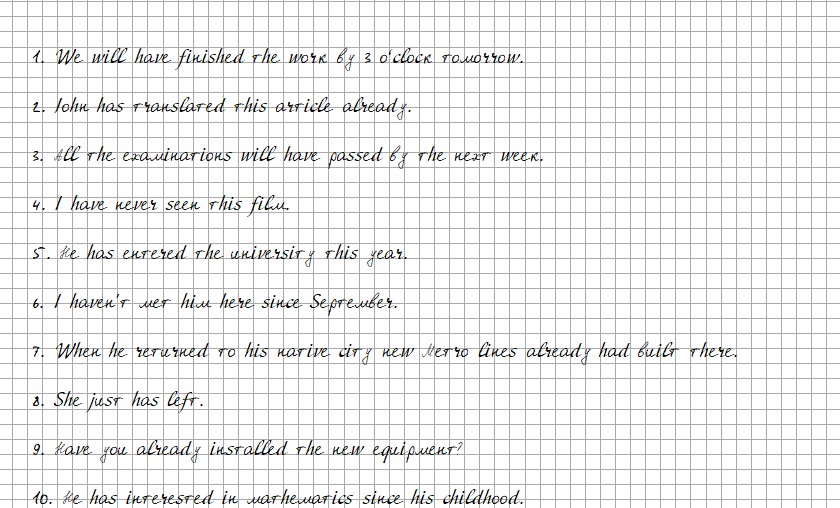 1. We will have finished the work by 3 o'clock tomorrow.
2. John has translated this article already.
3. All the examinations will have passed by the next week.
4. I have never seen this film.
5. He has entered the university this year.
6. I haven't met him here since September.
7. When he returned to his native city new Metro lines already had built there.
8. She just has left.
9. Have you already installed the new equipment?
10. He has interested in mathematics since his childhood.